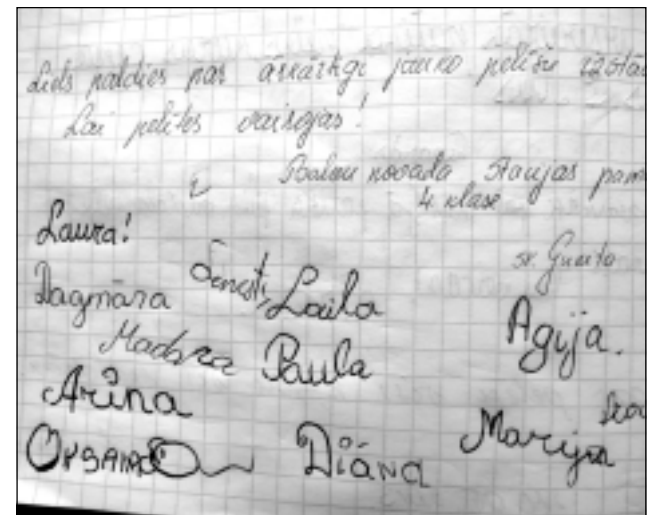 Liels paldies par ārkārtīgi jauko pelīšu izstā
Lai pelītes vairojas!
Balvu novada Stacijas pam
4. klase
Laura!
Dagmāra
Ernests, Laila
Agija.
Madara Paula
Arīna
Marija
Diāna